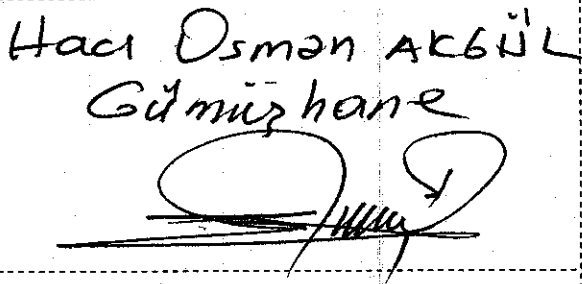 Hacı Osman AKGÜL
Gümüşhane